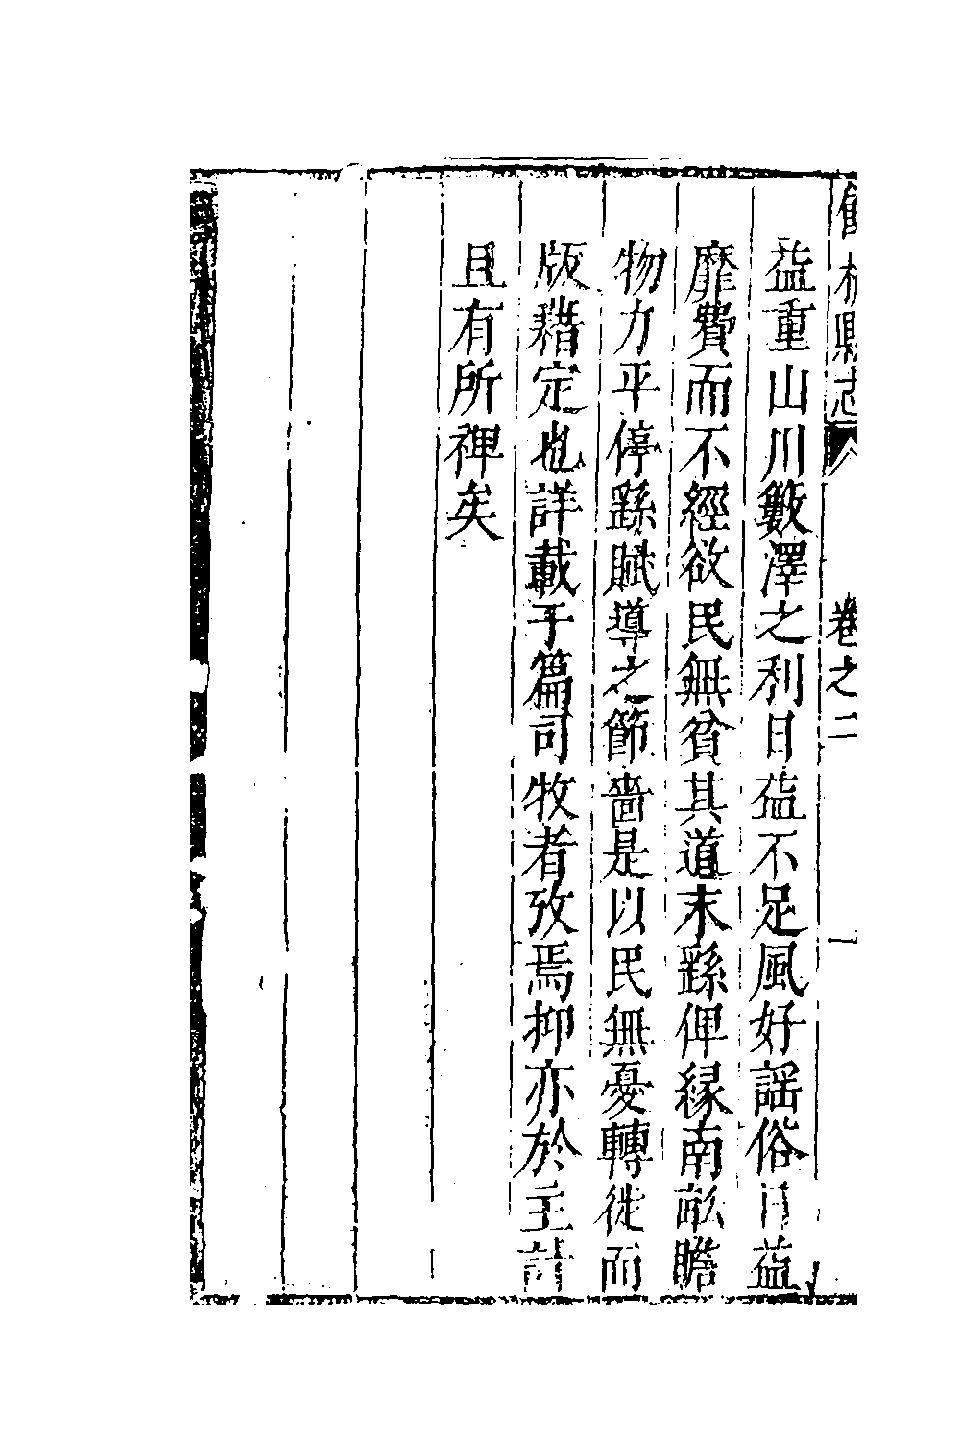 餘杭縣志 卷之二 一
益重山川藪澤之利日益不足風好謡俗日益
靡費而不經欲民無貧其道末繇俾緣南畝瞻
物力平停繇賦導之節嗇是以民無憂轉徙而
版藉定也詳載于篇司牧者攷焉抑亦於主計
且有所裨矣